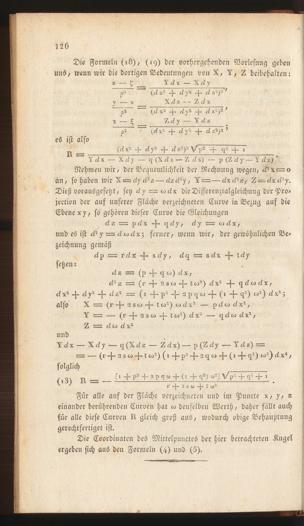 126
Die Formeln (18), (19) der vorhergehenden Vorlesung geben
uns, wenn wir die dortigen Bedeutungen von X, Y, Z beibehalten:
es ist also
Nehmen wir, der Bequemlichkeit der Rechnung wegen, d²x = 0
an, so haben wir X = dy d²z — dz d²y, Y = — dx d²z, Z = dx d²y.
Dieß vorausgesetzt, sey dy = ω dx die Differenzialgleichung der Pro-
jection der auf unserer Fläche verzeichneten Curve in Bezug auf die
Ebene xy, so gehören dieser Curve die Gleichungen
dz = p dx + q dy, dy = ω dx,
und es ist d²y = dω dx; ferner, wenn wir, der gewöhnlichen Be-
zeichnung gemäß
dp = r dx + s dy, dq = s dx + t dy
setzen:
dz = (p + qω) dx,
d²z = (r + 2sω + tω²) dx² + q dω dx,
dx² + dy² + dz² = (1 + p² + 2pqω + (1 + q²) ω²) dx²;
also X = (r + 2sω + tω²) ω dx³ — p dω dx²,
Y = — (r + 2sω + tω²) dx³ — q dω dx²,
Z = dω dx²
und
Y dx — X dy — q (X dz — Z dx) — p (Z dy — Y dz) =
= — (r + 2sω + tω²) (1 + p² + 2pqω + (1 + q²) ω²) dx⁴,
folglich
(13) R = — [1 + p² + 2pqω + (1 + q²) ω²] √p² + q² + 1 / r + 2sω + tω² .
Für alle auf der Fläche verzeichneten und im Puncte x, y, z
einander berührenden Curven hat ω denselben Werth, daher fällt auch
für alle diese Curven R gleich groß aus, wodurch obige Behauptung
gerechtfertiget ist.
Die Coordinaten des Mittelpunctes der hier betrachteten Kugel
ergeben sich aus den Formeln (4) und (5).